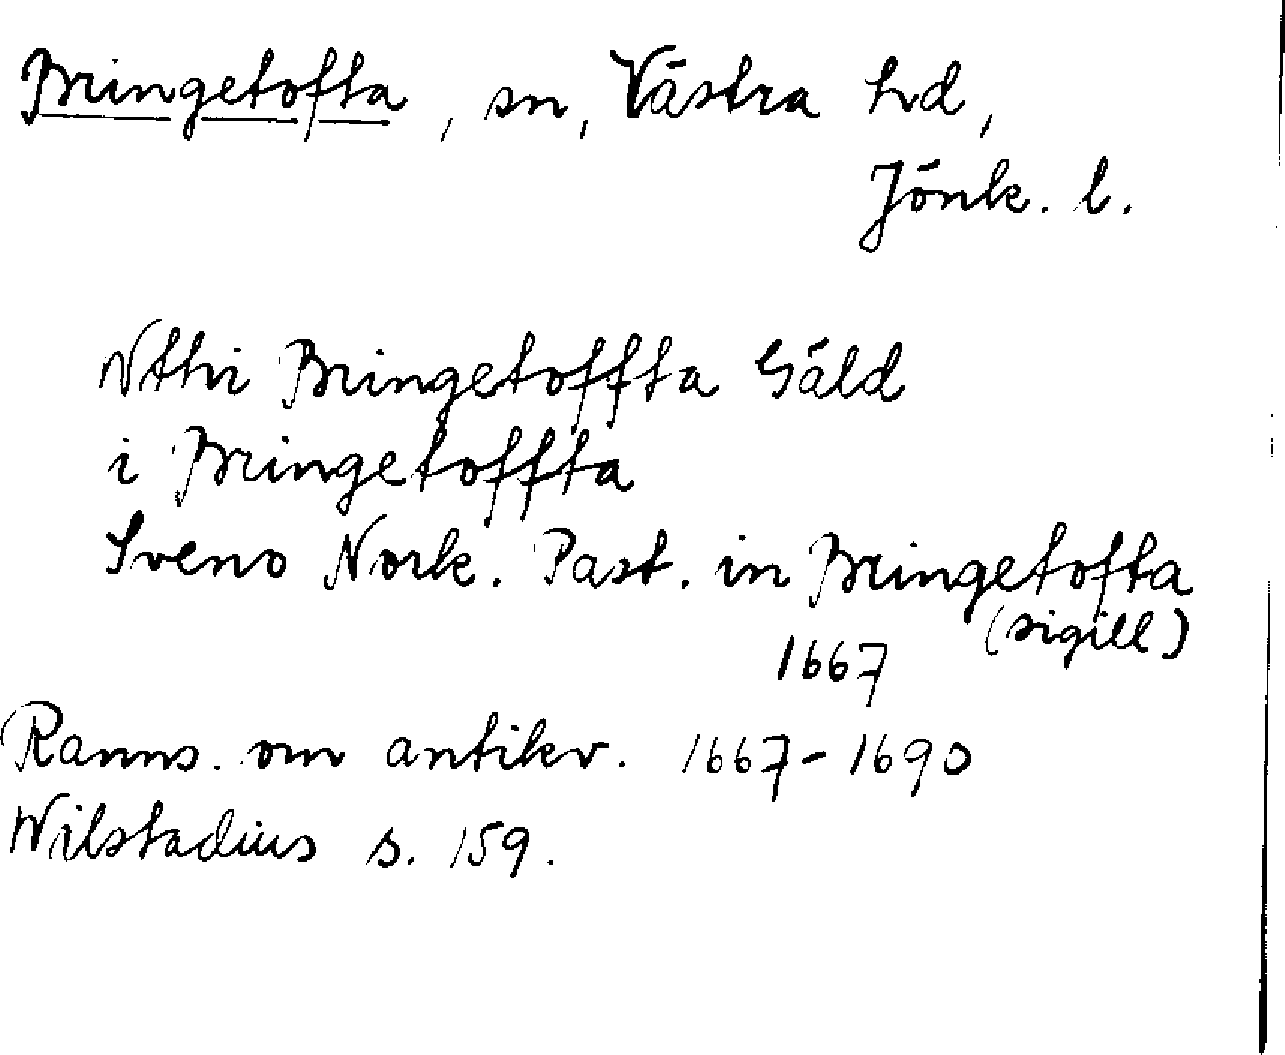 Bringetofta, sn, Västra hd,
Jönk. l.
Vthi Bringetoffta Gäld
i Bringetoffta
Sveno Nork. Past. in Bringetofta
(sigill)
1667
Ranns. om antikv. 1667-1690
Wilstadius s. 159.